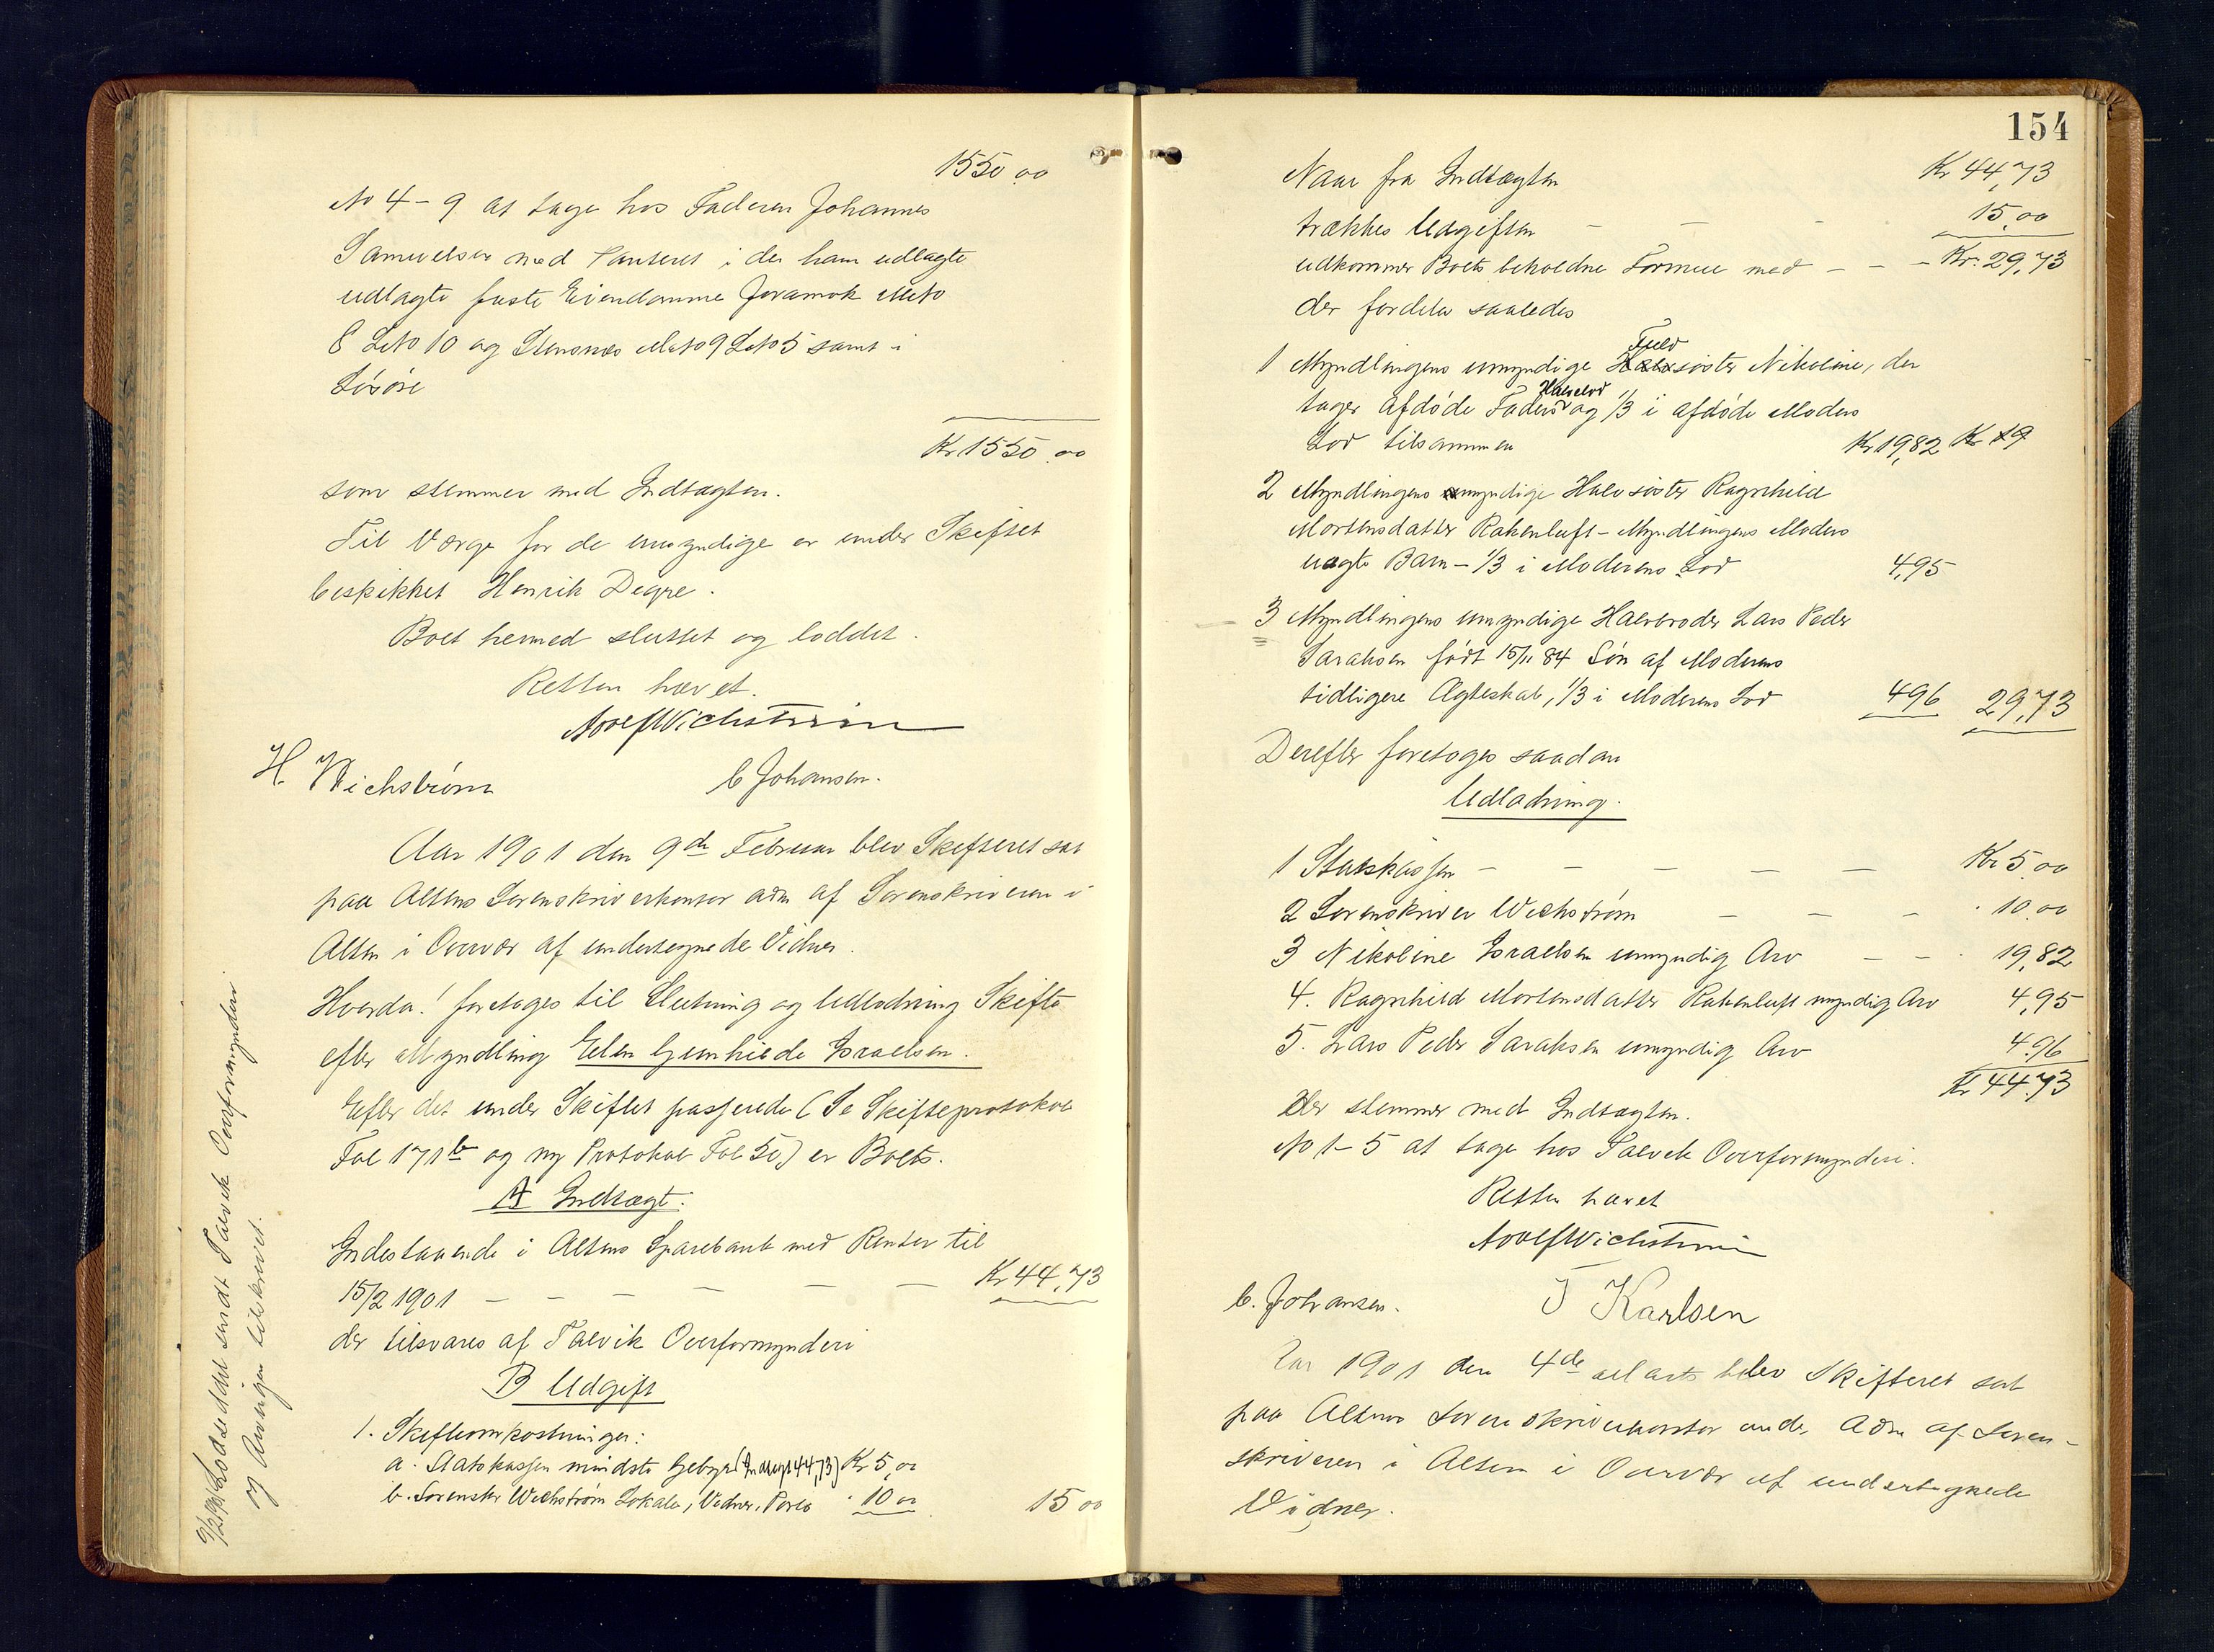 1550.00
No 4-9 at tage hos Faderen Johannes
Samuelsen med Panteret i de ham udlagte
udlagte faste Eiendomme Joramok MNo
8 LNo 10 og Stensnes MNo 9 LNo 5 samt i
Løsøre
Kr 1550.00
som stemmer med Indtægten.
Til Værge for de umyndige er under Skiftet
beskikket Henrik Degre.
Boet hermed sluttet og loddet.
Retten hævet.
Adolf Wichstrøm
H. Wichstrøm C Johansen.
Aar 1901 den 9de Februar blev Skifteret sat
paa Altens Sorenskriverkontor adm af Sorenskriveren i
Alten i Overvær af undertegnede Vidner.
Hvorda! foretoges til Slutning og Udlodning Skifte
efter Myndling Elen Gunhilde Israelsen.
Efter det under Skiftet passerede (Se Skifteprotokol
Fol 171b og ny Protokol Fol 50) er Boets.
A Indtægt:
Indestaaende i Altens Sparebank med Renter til
15/2 1901 — — — — — — Kr 44,73
der tilsvares af Talvik Overformynderi
B Udgift
1. Skifteomkostninger:
a. Statskassen mindste Gebyr (Indtægt 44,73) Kr 5,00
b. Sorenskr Wichstrøm Lokale, Vidner, Porto " 10 00 15 00
Loddseddel sendt Talvik Overformynderi
og Arvinger tilskrevet.
154
Naar fra Indtægten Kr 44,73
trækkes Udgiften — — — 15,00
udkommer Boets beholdne Formue med — — — Kr. 29,73
der fordeles saaledes
Fuld
1 Myndlingens umyndige Halvsøster Nikoline, der
Halvelod
tager afdøde Faders og 1/3 i afdøde Moders
Lod tilsammen Kr 19,82 Kr 19
2 Myndlingens umyndige Halvsøster Ragnhild
Mortensdatter Rakenluft - Myndlingens Moders
uægte Barn - 1/3 i Moderens Lod 4,95
3 Myndlingens umyndige Halvbroder Lars Peder
Saraksen født 15/11 84 Søn af Moderens
tidligere Ægteskab, 1/3 i Moderens Lod 496 29,73
Derefter foretoges saadan
Udlodning.
1 Statskassen — — — — — Kr 5.00
2 Sorenskriver Wichstrøm — — — " 10.00
3 Nikoline Israelsen umyndig Arv — — " 19,82
4. Ragnhild Mortensdatter Rakenluft myndig Arv 4,95
5. Lars Peder Saraksen umyndig Arv 4.96
Kr 44.73
der stemmer med Indtægten.
No 1-5 at tage hos Talvik Overformynderi.
Retten hævet
Adolf Wichstrøm
C. Johansen. T Karlsen
Aar 1901 den 4de Marts blev Skifteret sat
paa Altens Sorenskriverkontor under Adm af Soren-
skriveren i Alten i Overvær af undertegnede
Vidner.